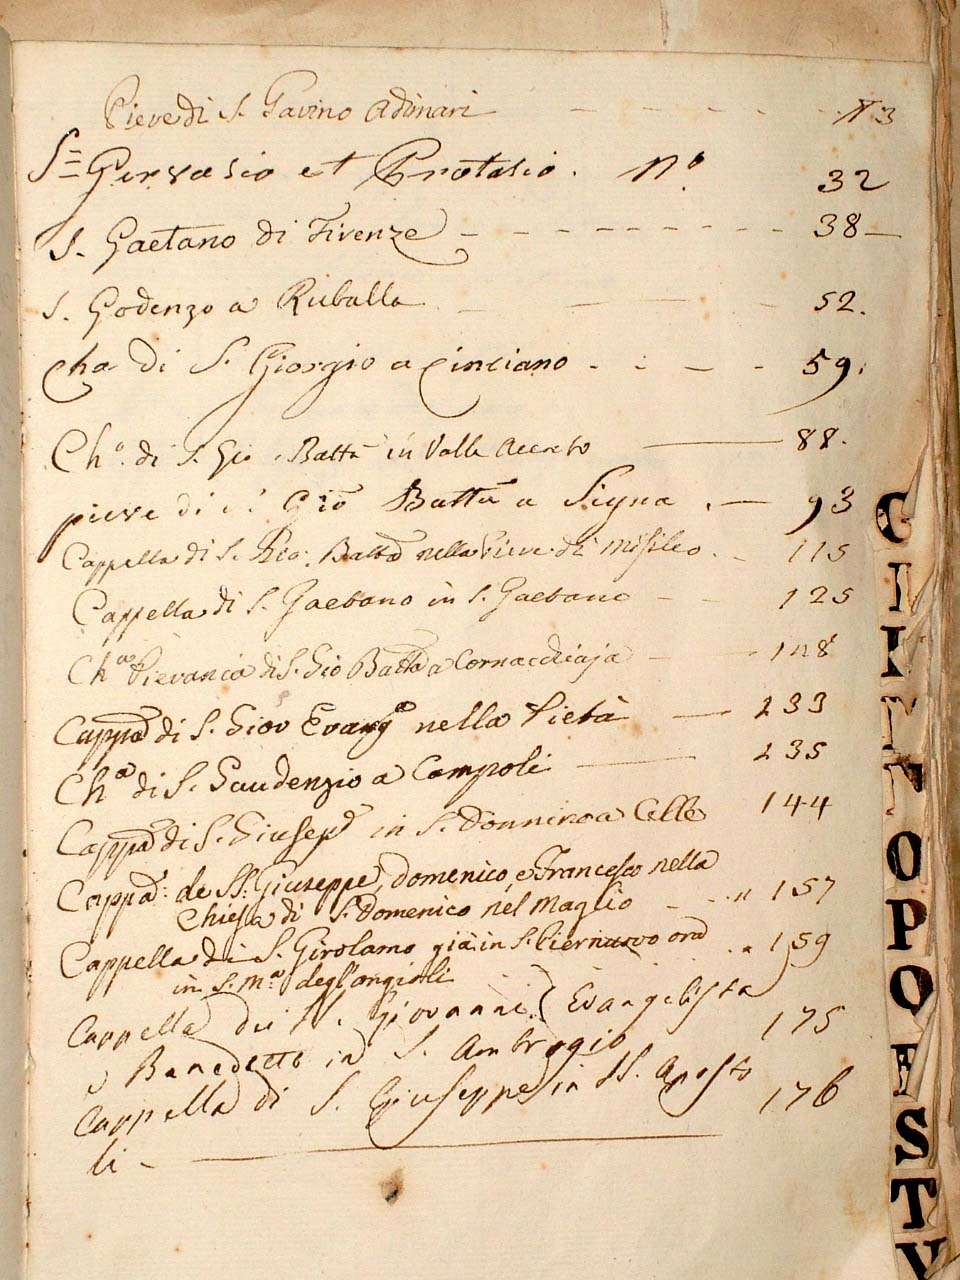 Pieve di S. Gavino Adimari - - - - - N 3
SS Gervasio et Protasio. N.º 32
S. Gaetano di Firenze - - - - - - - - - 38 -
S. Godenzo a Ruballa - - - - 52.
Cha di S. Giorgio a Cinciano - - - - 59.
Chª di S. Gio Batta in Valle Acereto — 88.
pieve di S. Gio Batta a Signa . — 93
Cappella di S. Gio: Batta nella Pieve di Misileo . - 115
Cappella di S. Gaetano in S. Gaetano - - 125
Chª Pievania di S. Gio Batta a Cornacchiaja - — 128
Cappª di S. Giov Evangª nella Pietà — 133
Chª di S. Gaudenzio a Campoli — 135
Cappª di S. Giusepe in S. Donnino a Celle 144
Cappª: de SS: Giuseppe, Domenico, e Francesco nella
Chiesa di S. Domenico nel Maglio - - " 157
Cappella di S. Girolamo già in S. Pier
in S. Mª degl'Angioli . . . " 159
Cappella dei SS. Giovanni Evangelista
e Benedetto in S. Ambrogio 175
Cappella di S. Giuseppe in SS. Aposto
li - 176
G
I
K
O
P
Q
S
T
V